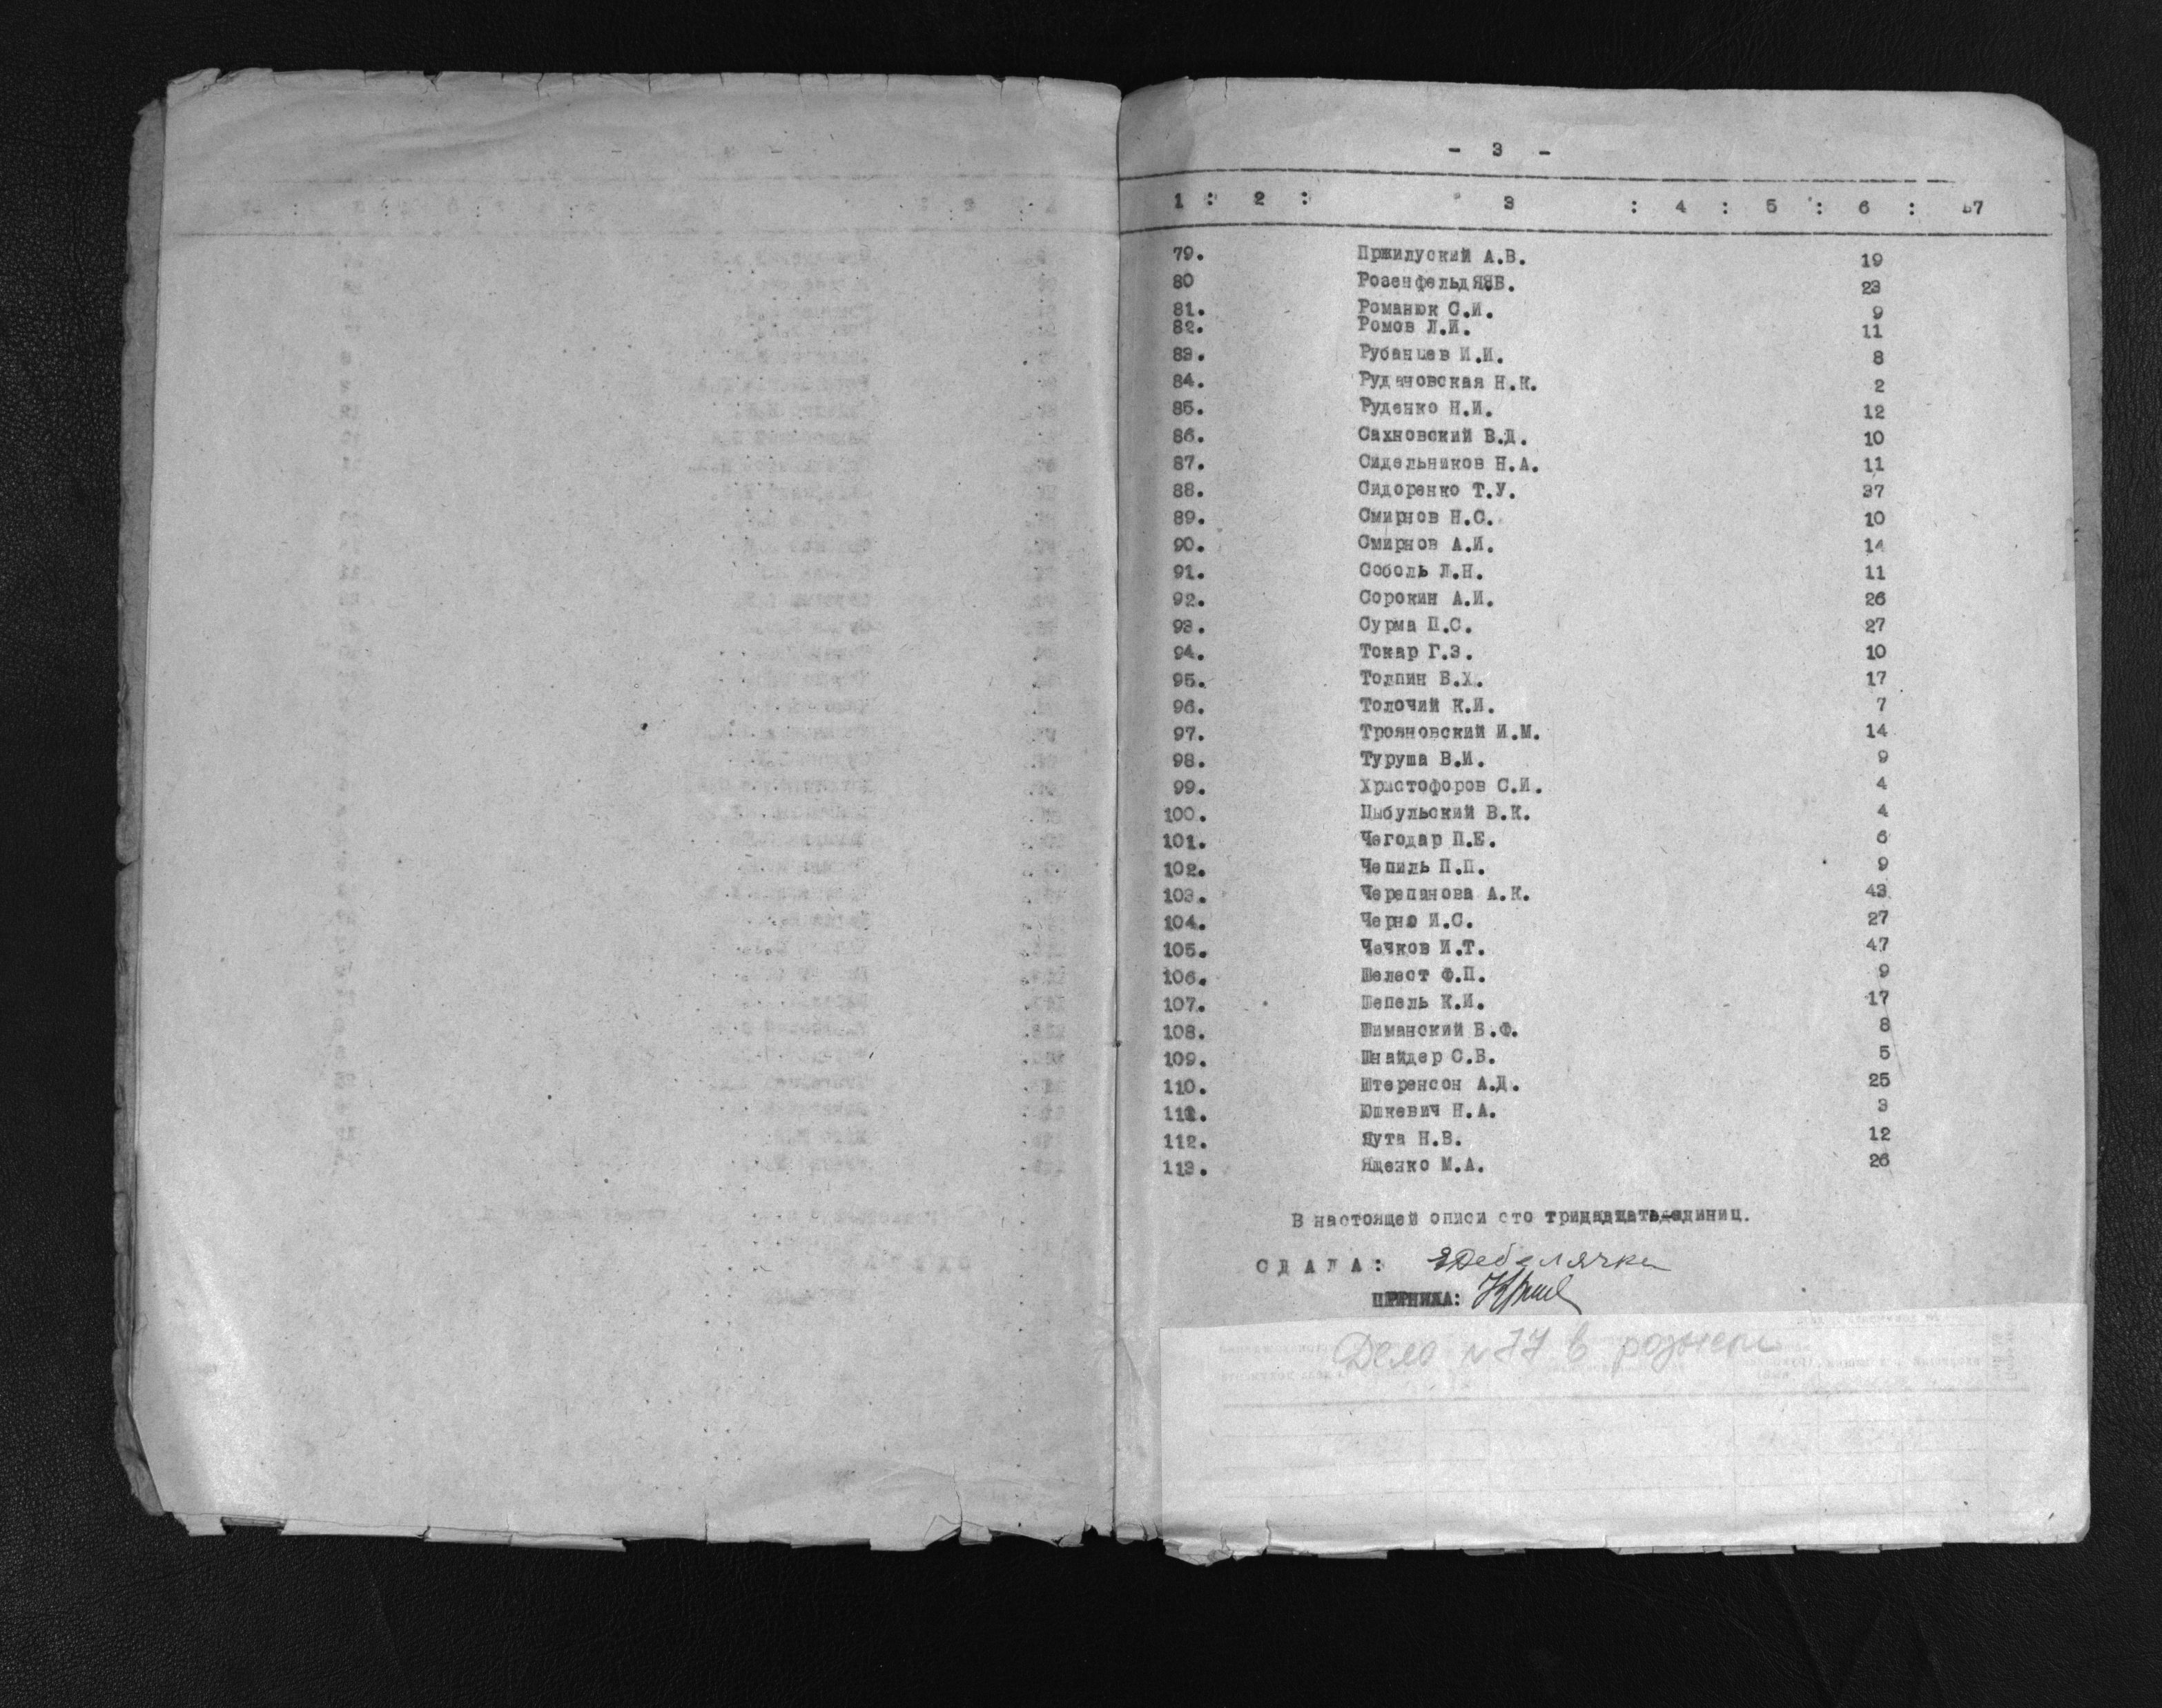 - 3 -
1 : 2 : 3 : 4 : 5 : 6 : 7
79. Пржилуский А.В. 19
80 Розенфельд Я.В. 23
81. Романюк С.И. 9
82. Ромов Л.И. 11
83. Рубанцев И.И. 8
84. Рудановская Н.К. 2
85. Руденко Н.И. 12
86. Сахновский В.Д. 10
87. Сидельников Н.А. 11
88. Сидоренко Т.У. 37
89. Смирнов Н.С. 10
90. Смирнов А.И. 14
91. Соболь Л.Н. 11
92. Сорокин А.И. 26
93. Сурма П.С. 27
94. Токар Г.З. 10
95. Толпин В.Х. 17
96. Толочий К.И. 7
97. Трояновский И.М. 14
98. Туруша В.И. 9
99. Христофоров С.И. 4
100. Цыбульский В.К. 4
101. Чегодар П.Е. 6
102. Чепиль П.П. 9
103. Черепанова А.К. 43
104. Черно И.С. 27
105. Чечков И.Т. 47
106. Шелест Ф.П. 9
107. Шепель К.И. 17
108. Шиманский В.Ф. 8
109. Шнайдер С.В. 5
110. Штеренсон А.Д. 25
111. Юшкевич Н.А. 3
112. Яута Н.В. 12
113. Ященко М.А. 26
В настоящей описи сто тринадцать единиц.
СДАЛА:
ПРИНЯЛА:
Дело №77 в